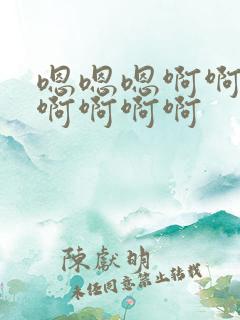 嗯嗯嗯啊啊
啊啊啊啊
陳獻明
未经同意禁止转载